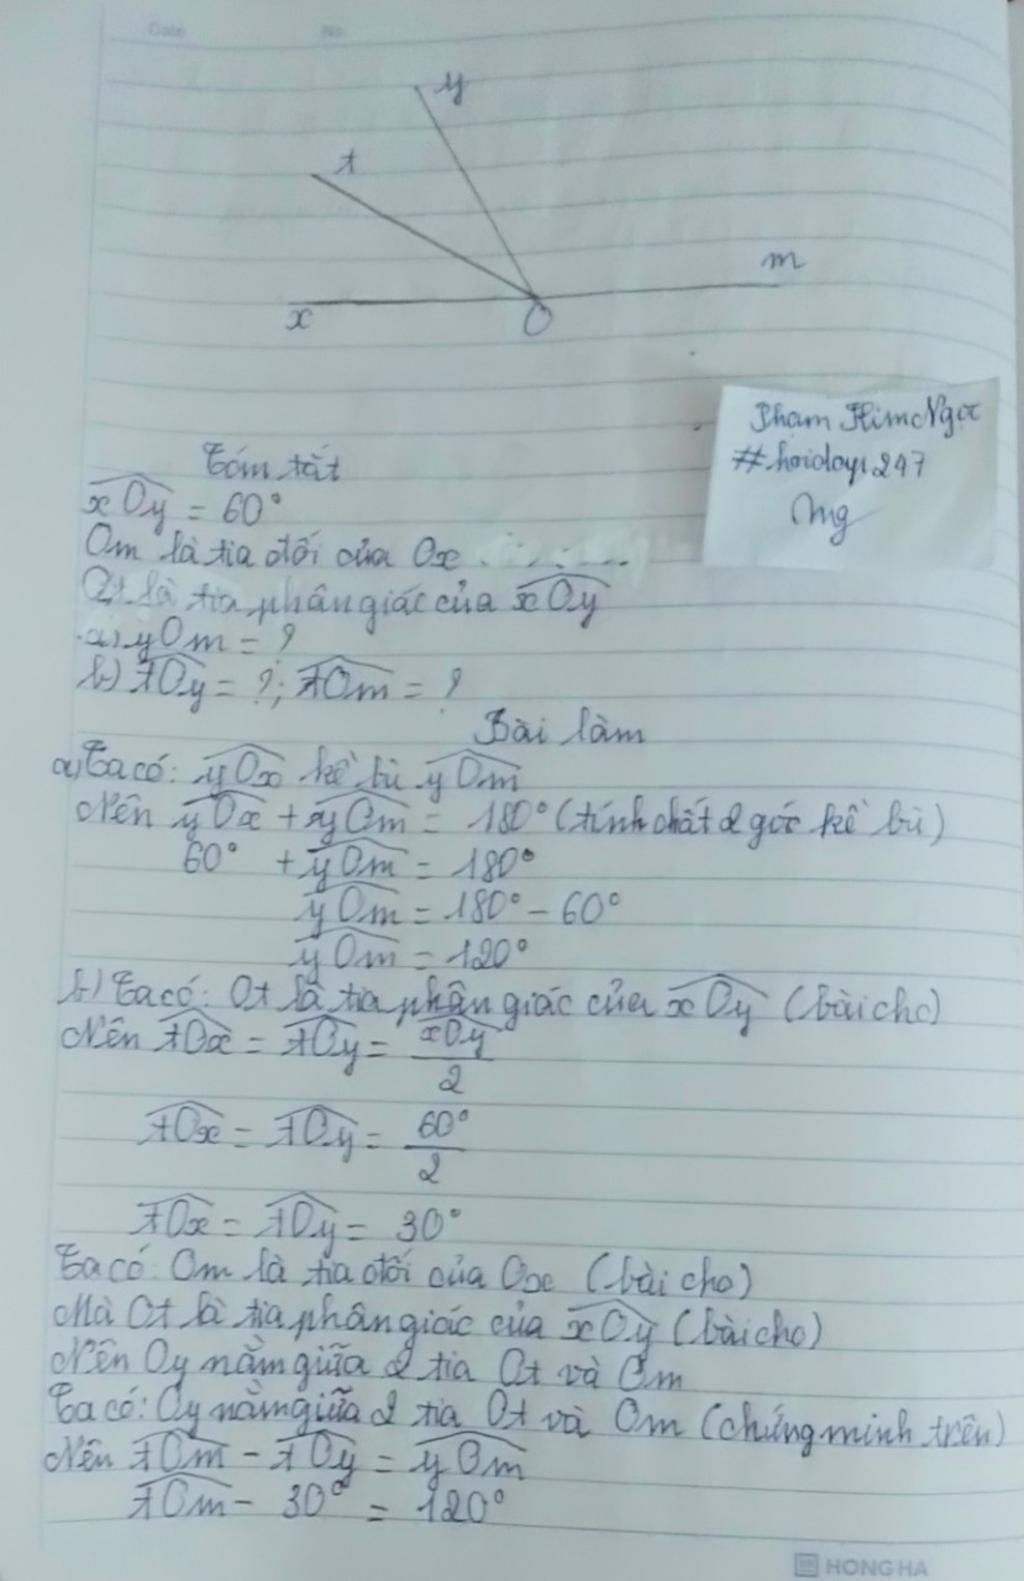 Date No.
y
t
m
x
O
Phạm Kim Ngọc
#hoidap247
Mg
Tóm tắt
xOy = 60°
Om là tia đối của Ox
Ot là tia phân giác của xOy
a) yOm = ?
b) tOy = ?; tOm = ?
Bài làm
a) Ta có: yOx kề bù yOm
Nên yOx + yOm = 180° (tính chất 2 góc kề bù)
60° + yOm = 180°
yOm = 180° - 60°
yOm = 120°
b) Ta có: Ot là tia phân giác của xOy (bài cho)
Nên tOx = tOy = xOy/2
tOx = tOy = 60°/2
tOx = tOy = 30°
Ta có: Om là tia đối của Ox (bài cho)
Mà Ot là tia phân giác của xOy (bài cho)
Nên Oy nằm giữa 2 tia Ot và Om
Ta có: Oy nằm giữa 2 tia Ot và Om (chứng minh trên)
Nên tOm - tOy = yOm
tOm - 30° = 120°
HONG HA